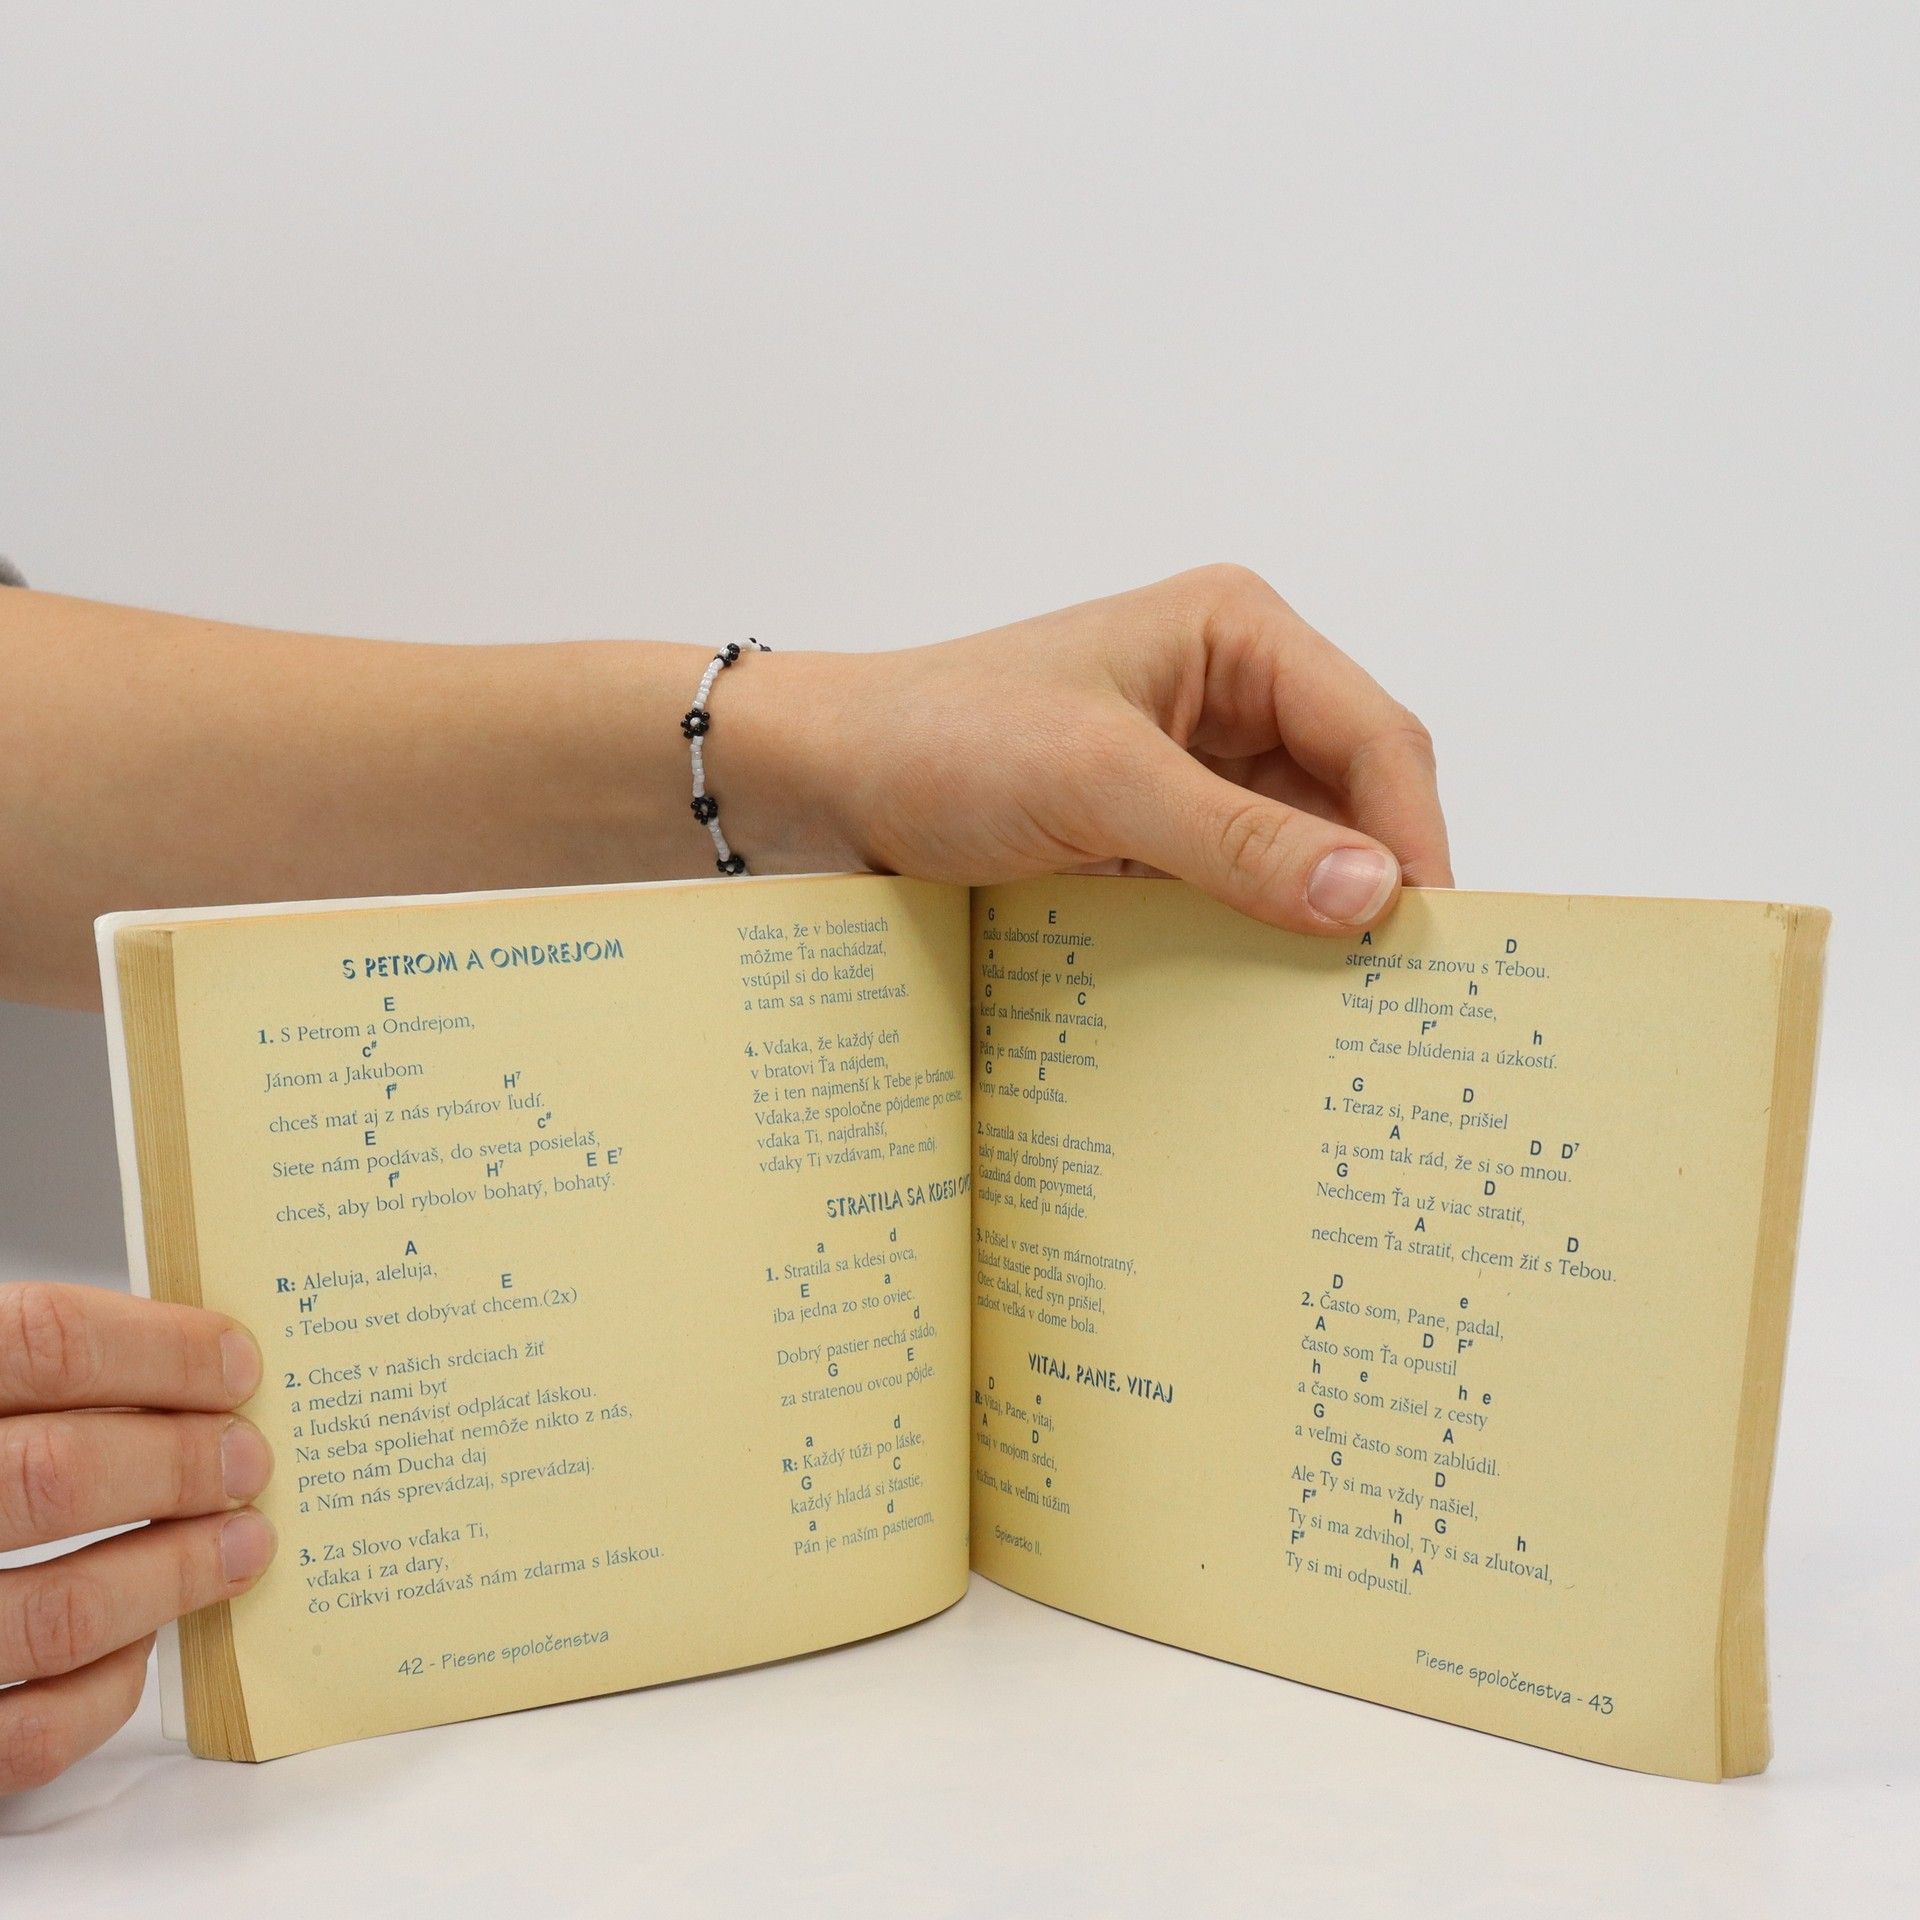 S PETROM A ONDREJOM
E
1. S Petrom a Ondrejom,
c#
Jánom a Jakubom
f# H7
chceš mať aj z nás rybárov ľudí.
E c#
Siete nám podávaš, do sveta posielaš,
f# H7 E E7
chceš, aby bol rybolov bohatý, bohatý.
A
R: Aleluja, aleluja,
H7 E
s Tebou svet dobývať chcem.(2x)
2. Chceš v našich srdciach žiť
a medzi nami byť
a ľudskú nenávisť odplácať láskou.
Na seba spoliehať nemôže nikto z nás,
preto nám Ducha daj
a Ním nás sprevádzaj, sprevádzaj.
3. Za Slovo vďaka Ti,
vďaka i za dary,
čo Cirkvi rozdávaš nám zdarma s láskou.
42 - Piesne spoločenstva
Vďaka, že v bolestiach
môžme Ťa nachádzať,
vstúpil si do každej
a tam sa s nami stretávaš.
4. Vďaka, že každý deň
v bratovi Ťa nájdem,
že i ten najmenší k Tebe je bránou.
Vďaka,že spoločne pôjdeme po ceste,
vďaka Ti, najdrahší,
vďaky Ti vzdávam, Pane môj.
STRATILA SA KDESI
a d
1. Stratila sa kdesi ovca,
E a
iba jedna zo sto oviec.
d
Dobrý pastier nechá stádo,
G E
za stratenou ovcou pôjde.
a d
R: Každý túži po láske,
G C
každý hľadá si šťastie,
a d
Pán je naším pastierom,
G E
našu slabosť rozumie.
a d
Veľká radosť je v nebi,
G C
keď sa hriešnik navracia,
a d
Pán je naším pastierom,
G E
viny naše odpúšťa.
2. Stratila sa kdesi drachma,
taký malý drobný peniaz.
Gazdiná dom povymetá,
raduje sa, keď ju nájde.
3. Pošiel v svet syn márnotratný,
hľadať šťastie podľa svojho.
Otec čakal, keď syn prišiel,
radosť veľká v dome bola.
VITAJ, PANE, VITAJ
D e
R: Vitaj, Pane, vitaj,
A D
vitaj v mojom srdci,
e
túžim, tak veľmi túžim
Spievatko II.
A D
stretnúť sa znovu s Tebou.
F# h
Vitaj po dlhom čase,
F# h
tom čase blúdenia a úzkostí.
G D
1. Teraz si, Pane, prišiel
A D D7
a ja som tak rád, že si so mnou.
G D
Nechcem Ťa už viac stratiť,
A D
nechcem Ťa stratiť, chcem žiť s Tebou.
D e
2. Často som, Pane, padal,
A D F#
často som Ťa opustil
h e h e
a často som zišiel z cesty
G A
a veľmi často som zablúdil.
G D
Ale Ty si ma vždy našiel,
F# h G h
Ty si ma zdvihol, Ty si sa zľutoval,
F# h A
Ty si mi odpustil.
Piesne spoločenstva - 43